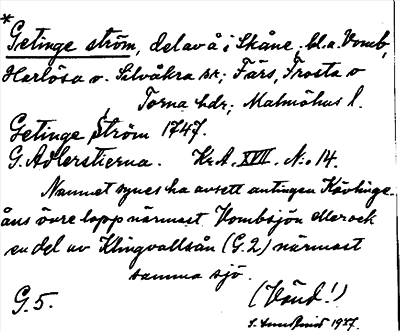 *
Getinge ström, del av å i Skåne, bl.a. Vomb,
Harlösa o. Silvåkra sr; Färs, Frosta o
Torna hdr; Malmöhus l.
Getinge Ström 1747.
G. Adlerstierna. Kr.A. XVII. N:o 14.
Namnet synes ha avsett antingen Kävlinge-
åns övre lopp närmast Vombsjön eller ock
en del av Klingvallsån (G.2) närmast
samma sjö.
G.5. (Vänd!)
1947.